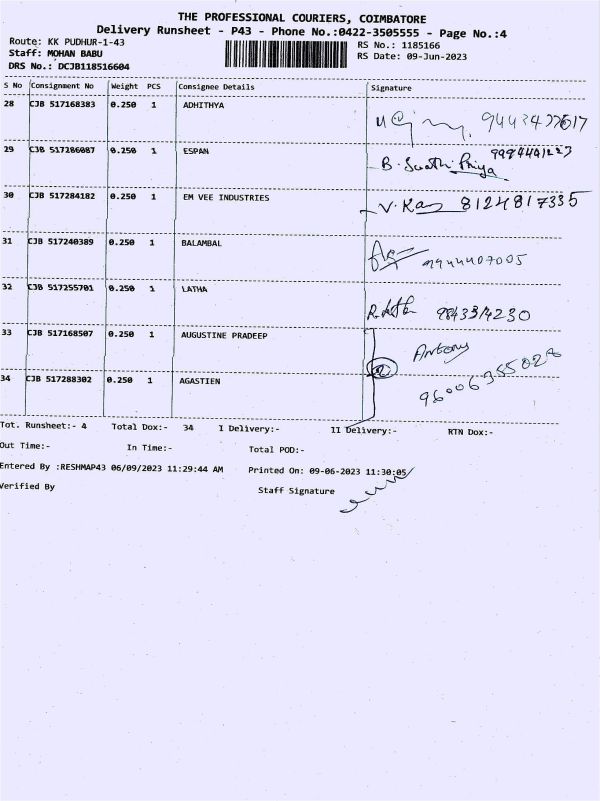 THE PROFESSIONAL COURIERS, COIMBATORE
Delivery Runsheet - P43 - Phone No.:0422-3505555 - Page No.:4
Route: KK PUDHUR-1-43 RS No.: 1185166
Staff: MOHAN BABU RS Date: 09-Jun-2023
DRS No.: DCJB118516604
S No Consignment No Weight PCS Consignee Details Signature
28 CJB 517168383 0.250 1 ADHITHYA
29 CJB 517286087 0.250 1 ESPAN B. Swathi Priya
30 CJB 517284182 0.250 1 EM VEE INDUSTRIES V. Kan 8124817335
31 CJB 517240389 0.250 1 BALAMBAL 9944407005
32 CJB 517255701 0.250 1 LATHA 9843314230
33 CJB 517168507 0.250 1 AUGUSTINE PRADEEP Antony
34 CJB 517288302 0.250 1 AGASTIEN
Tot. Runsheet:- 4 Total Dox:- 34 I Delivery:- II Delivery:- RTN Dox:-
Out Time:- In Time:- Total POD:-
Entered By :RESHMAP43 06/09/2023 11:29:44 AM Printed On: 09-06-2023 11:30:05
Verified By Staff Signature